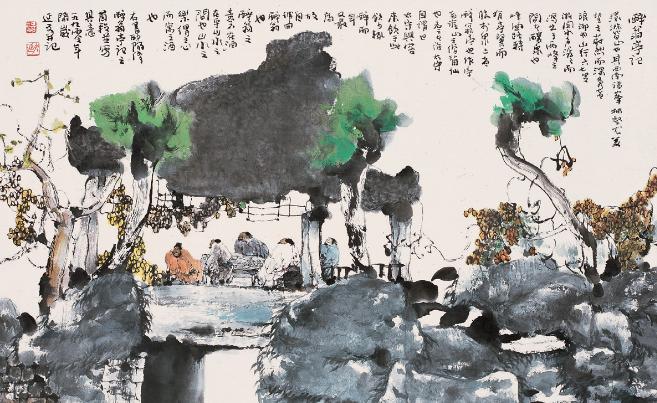 醉翁亭记
环滁皆山也其西南诸峰林壑尤美
望之蔚然而深秀者
琅琊也山行六七里
渐闻水声潺潺而
泻出于两峰之
间者酿泉也
峰回路转
有亭翼然
临于泉上者
醉翁亭也作亭
者谁山之僧智仙
也名之者谁太守
自谓也
太守与客
来饮于此
饮少辄
醉而
年又
最高
故自
号曰
醉翁
也
醉翁之
意不在酒
在乎山水之
间也山水之
乐得之心
而寓之酒
也
右书欧阳修
醉翁亭记之
首段并写
其意